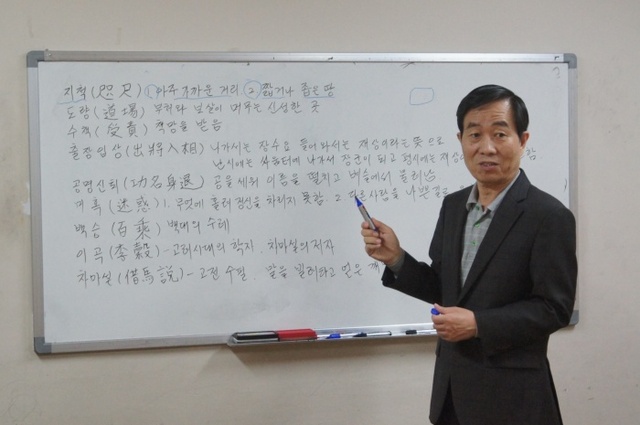 지척(咫尺) ① 아주 가까운 거리 ② 짧거나 좁은 땅
도량(道場) 부처와 보살이 머무는 신성한 곳
수책(受責) 책망을 받음
출장입상(出將入相) 나가서는 장수요 들어와서는 재상이라는 뜻으로
난시에는 싸움터에 나가서 장군이 되고 평시에는 재상
공명신퇴(功名身退) 공을 세워 이름을 떨치고 벼슬에서 물러남
미혹(迷惑) 1. 무엇에 홀려 정신을 차리지 못함. 2
백승(百乘) 백대의 수레
이곡(李穀) - 고려시대의 학자. 차마설의 저자
차마설(借馬說) - 고전 수필. 말을 빌려타고 얻은